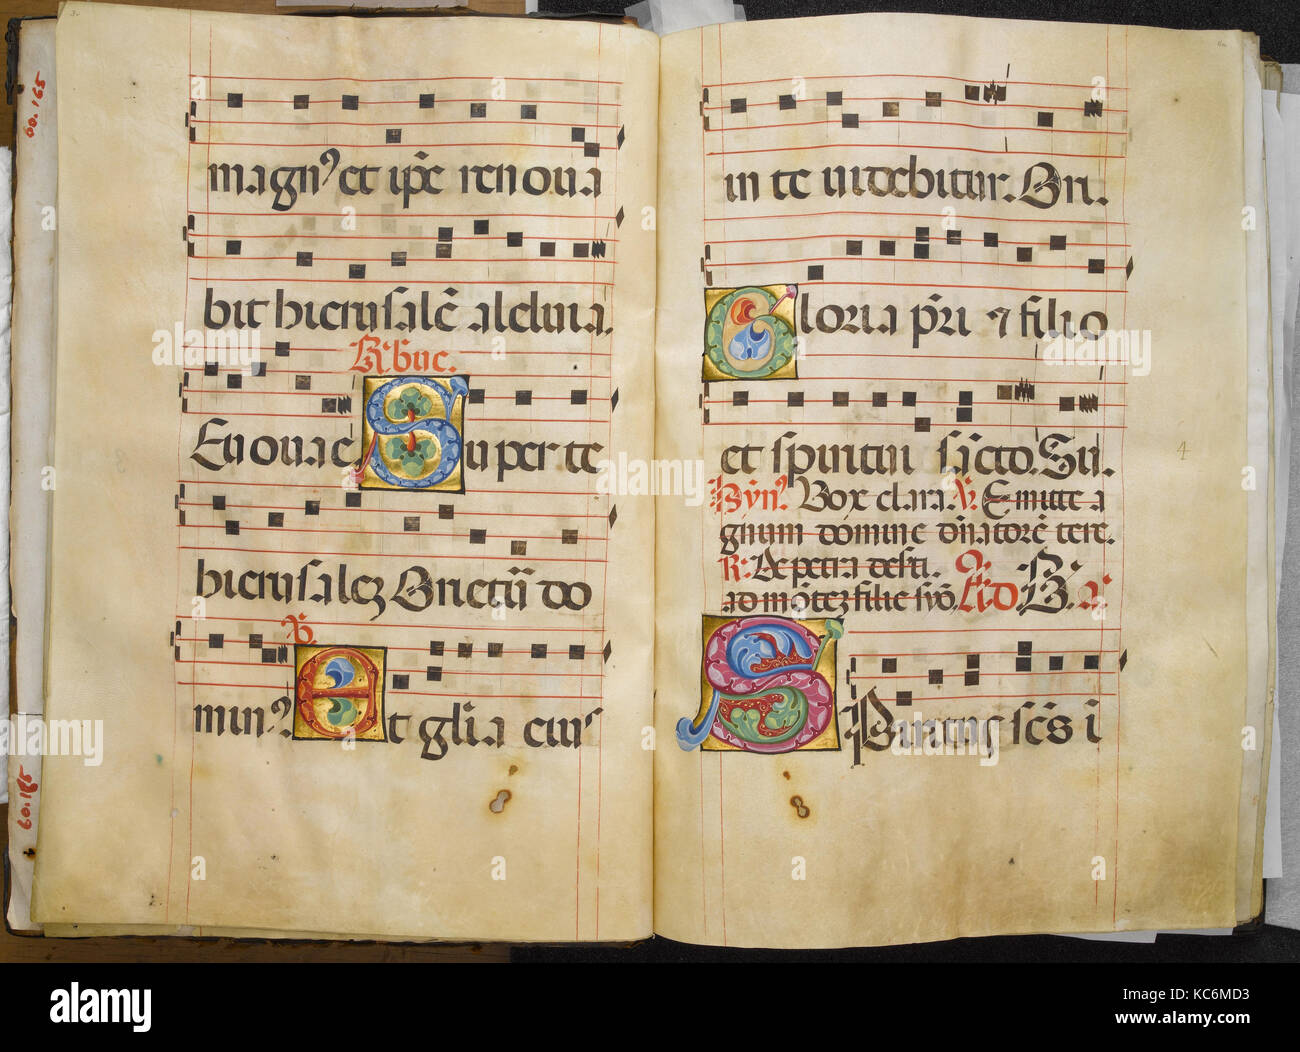 magn⁹ et ip̄e renoua
bit hierusalē aleluia.
R̃. buc.
Euouae. Super te
hierusalez Orietū do
V̄
min⁹. Et gl̄ia eius
in te uidebitur. Ori.
Gloria pr̄i ⁊ filio
et spiritui sācto. Su.
Hȳn⁹. Vox clara. V̄. Emitte a
gnum domine dn̄atorē terre.
R: De petra deserti.
ad mōtez filie syō. Ad B. A.
Spiritus sc̄s i
4
60.165
60.165
alamy
Image ID: KC6MD3
www.alamy.com